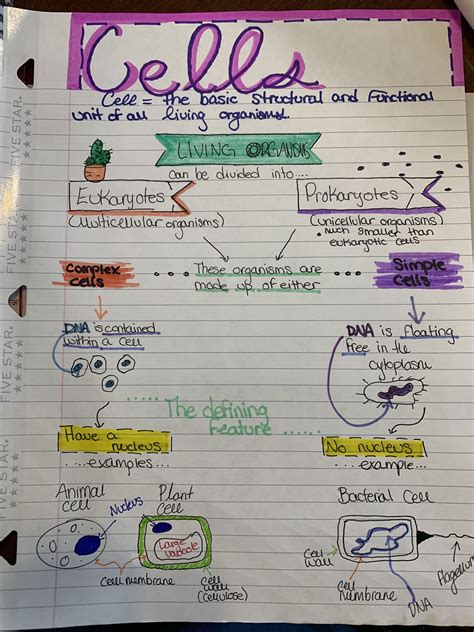 Cells
Cell = the basic structural and functional
unit of all living organisms.
LIVING ORGANISMS
can be divided into....
Eukaryotes
Prokaryotes
(Multicellular organisms)
(unicellular organisms)
• much smaller than
eukaryotic cells
Complex
cells
These organisms are
made up of either
Simple
cells
DNA is contained
within a cell
DNA is floating
free in the
cytoplasm
The defining
feature
Have a
nucleus
No nucleus
...examples...
...example...
Animal
cell
Nucleus
Plant
Cell
Bacterial Cell
Large
vacuole
Cell membrane
Cell
wall
(cellulose)
Cell
wall
Cell
membrane
DNA
flagellum
FIVE STAR.
FIVE STAR.
FIVE STAR.
FIVE STAR.